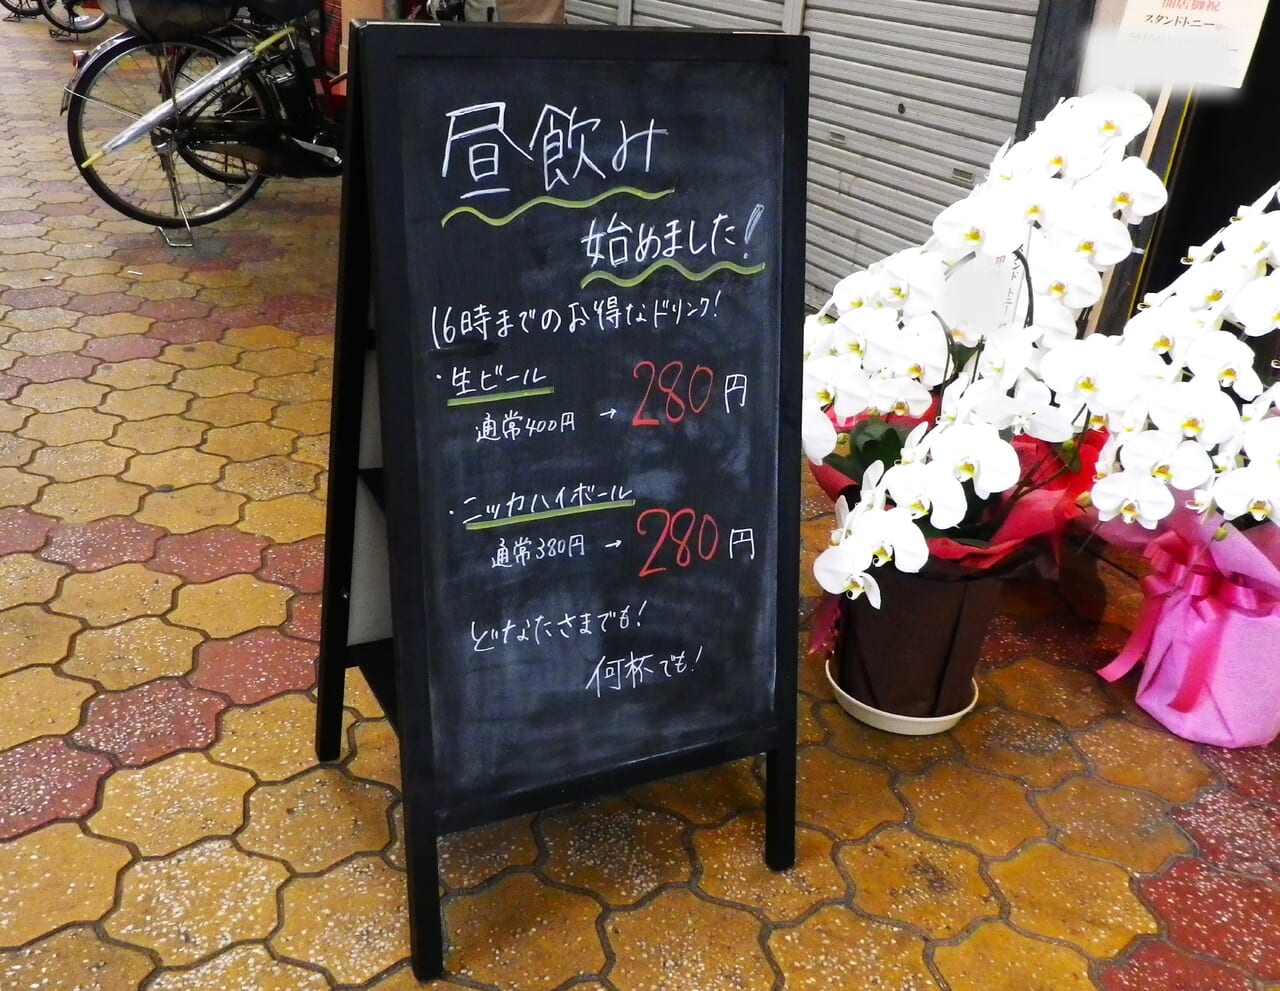 昼飲み
始めました!
16時までのお得なドリンク!
・生ビール
通常400円 → 280円
・ニッカハイボール
通常380円 → 280円
どなたさまでも!
何杯でも!
開店御祝
スタンドトニー